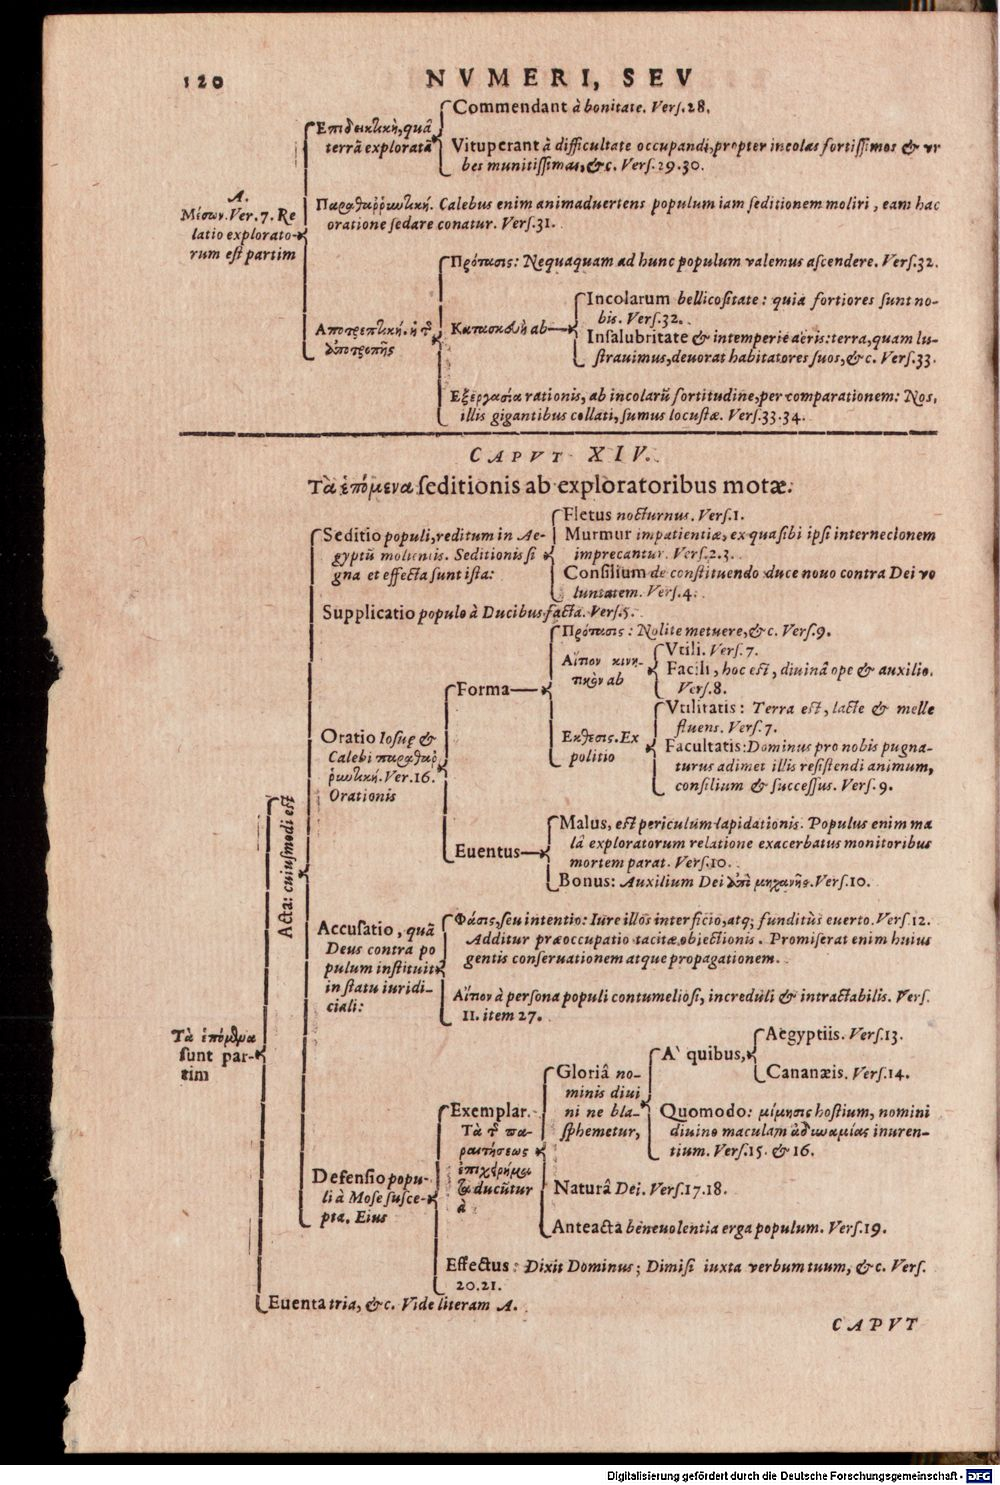 120
NVMERI, SEV
Commendant à bonitate. Vers.28.
Επιδεικτικὴ, quâ
terrā exploratā
Vituperant à difficultate occupandi, propter incolas fortissimos & vr
bes munitissimas, &c. Vers.29.30.
A.
Μέσων. Ver. 7. Re
latio explorato-
rum est partim
Παραθαῤῥυντική. Calebus enim animaduertens populum iam seditionem moliri, eam hac
oratione sedare conatur. Vers.31.
Αποτρεπτική. ἡ τ͂
ἀποτροπῆς
Πρότασις: Nequaquam ad hunc populum valemus ascendere. Vers.32.
Κατασκευὴ ab
Incolarum bellicositate: quia fortiores sunt no-
bis. Vers.32.
Insalubritate & intemperie aëris: terra, quam lu-
strauimus, deuorat habitatores suos, &c. Vers.33.
Εξεργασία rationis, ab incolarū fortitudine, per comparationem: Nos,
illis gigantibus collati, sumus locustæ. Vers.33.34.
CAPVT XIV.
Τὰ ἑπόμενα seditionis ab exploratoribus motæ.
Τὰ ἑπόμθμα
sunt par-
tim
Acta: cuiusmodi est
Seditio populi, reditum in Ae-
gyptū molientis. Seditionis si
gna et effecta sunt ista:
Fletus nocturnus. Vers.1.
Murmur impatientiæ, ex quasibi ipsi internecionem
imprecantur. Vers.2.3.
Consilium de constituendo duce nouo contra Dei vo
luntatem. Vers.4.
Supplicatio populo à Ducibus facta. Vers.5.
Oratio Iosuę &
Calebi παραθαῤ
ῥυντική. Ver.16.
Orationis
Forma
Πρότασις: Nolite metuere, &c. Vers.9.
Αἴτιον κινη-
τικὸν ab
Vtili. Vers.7.
Facili, hoc est, diuinâ ope & auxilio.
Vers.8.
Εκθεσις. Ex
politio
Vtilitatis: Terra est, lacte & melle
fluens. Vers.7.
Facultatis: Dominus pro nobis pugna-
turus adimet illis resistendi animum,
consilium & successus. Vers.9.
Euentus
Malus, est periculum lapidationis. Populus enim ma
lâ exploratorum relatione exacerbatus monitoribus
mortem parat. Vers.10.
Bonus: Auxilium Dei ἀπὸ μηχανῆς. Vers.10.
Accusatio, quâ
Deus contra po
pulum instituit
in statu iuridi-
ciali:
Φάσις, seu intentio: Iure illos interficio, atq; funditùs euerto. Vers.12.
Additur præoccupatio tacitæ obiectionis. Promiserat enim huius
gentis conseruationem atque propagationem.
Αἴτιον à persona populi contumeliosi, increduli & intractabilis. Vers.
11. item 27.
Defensio popu-
li à Mose susce-
pta. Eius
Exemplar.
Τὰ τ͂ πα-
ραιτήσεως
ἐπιχειρήμα
τα ducūtur
à
Gloriâ no-
minis diui
ni ne bla-
sphemetur,
A` quibus,
Aegyptiis. Vers.13.
Cananæis. Vers.14.
Quomodo: μίμησις hostium, nomini
diuino maculam ἀδυναμίας inuren-
tium. Vers.15. & 16.
Naturâ Dei. Vers.17.18.
Anteacta beneuolentia erga populum. Vers.19.
Effectus: Dixit Dominus; Dimisi iuxta verbum tuum, &c. Vers.
20.21.
Euenta tria, &c. Vide literam A.
CAPVT
Digitalisierung gefördert durch die Deutsche Forschungsgemeinschaft - DFG